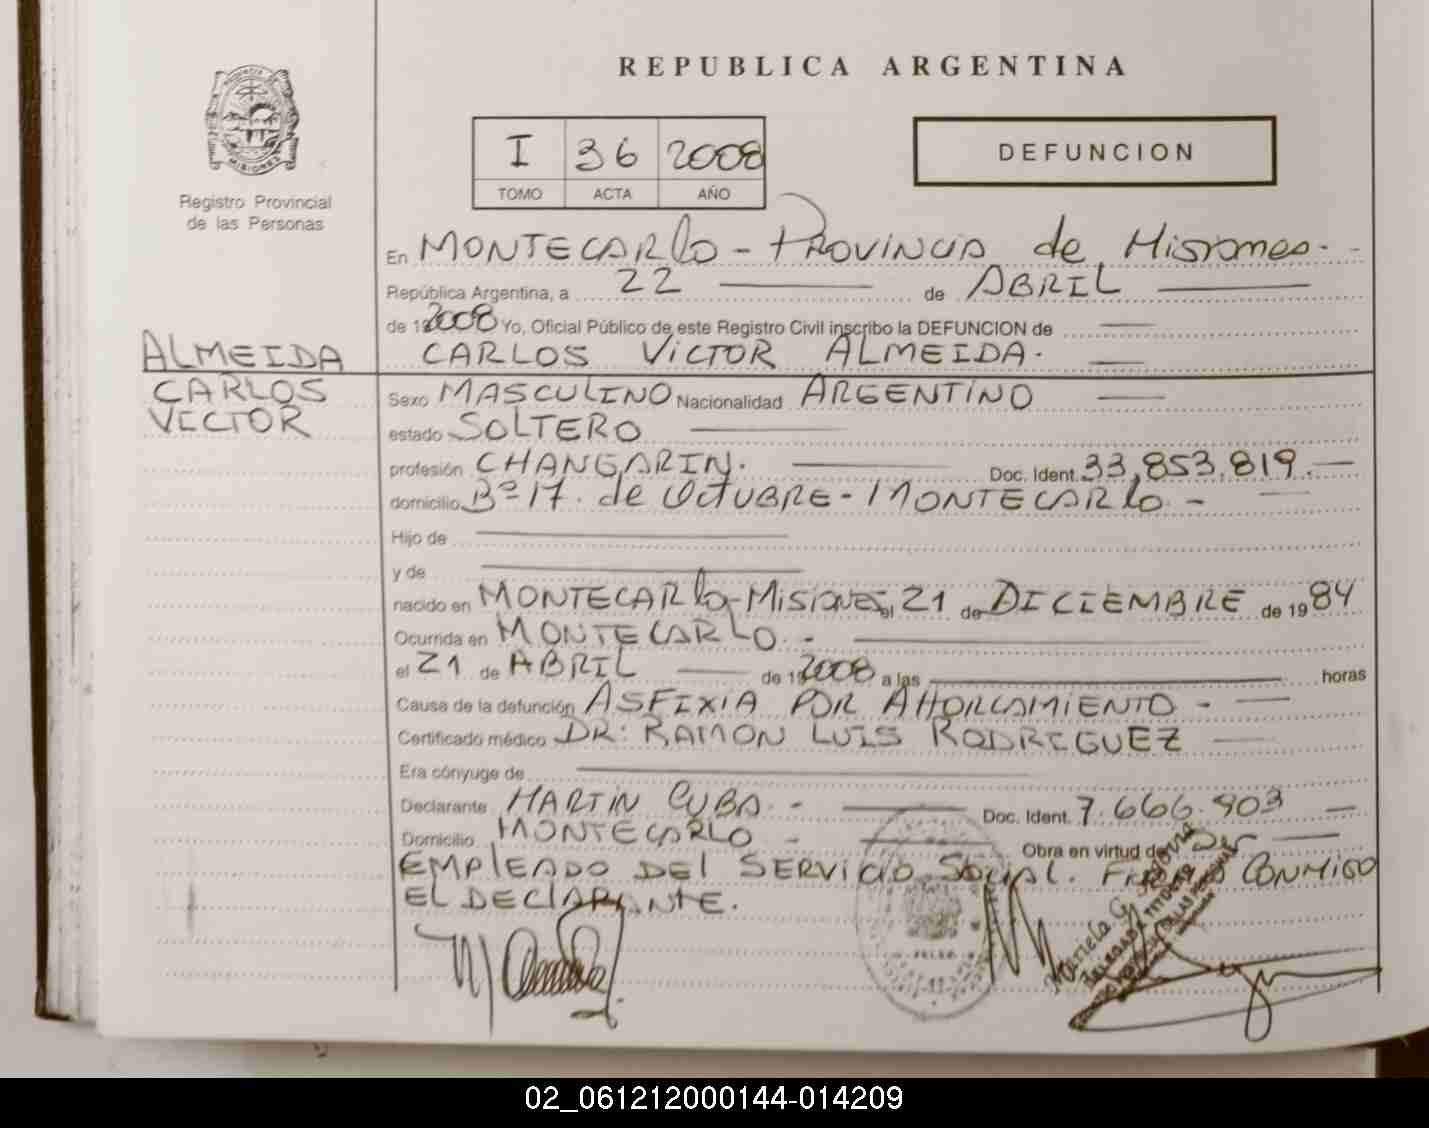 REPUBLICA ARGENTINA
I 36 2008
TOMO ACTA AÑO
DEFUNCION
MISIONES
Registro Provincial
de las Personas
En MONTECARLO - PROVINCIA de Misiones.
República Argentina, a 22 de ABRIL
de 19 2008 Yo, Oficial Público de este Registro Civil inscribo la DEFUNCION de
CARLOS VICTOR ALMEIDA.
ALMEIDA
CARLOS
VICTOR
Sexo MASCULINO Nacionalidad ARGENTINO
estado SOLTERO
profesión CHANGARIN. Doc. Ident. 33,853,819.
domicilio Bº 17. de OCTUBRE - MONTECARLO. -
Hijo de
y de
nacido en MONTECARLO-MISIONES el 21 de DICIEMBRE de 19 84
Ocurrida en MONTECARLO. -
el 21 de ABRIL de 19 2008 a las horas
Causa de la defunción ASFIXIA POR AHORCAMIENTO -
Certificado médico DR: RAMON LUIS RODRIGUEZ
Era cónyuge de
Declarante MARTIN CUBA. - Doc. Ident. 7.666.903
Domicilio MONTECARLO - Obra en virtud de Ser
EMPLEADO DEL SERVICIO SOCIAL. CONMIGO
EL DECLARANTE.
Mariela G.
02_061212000144-014209